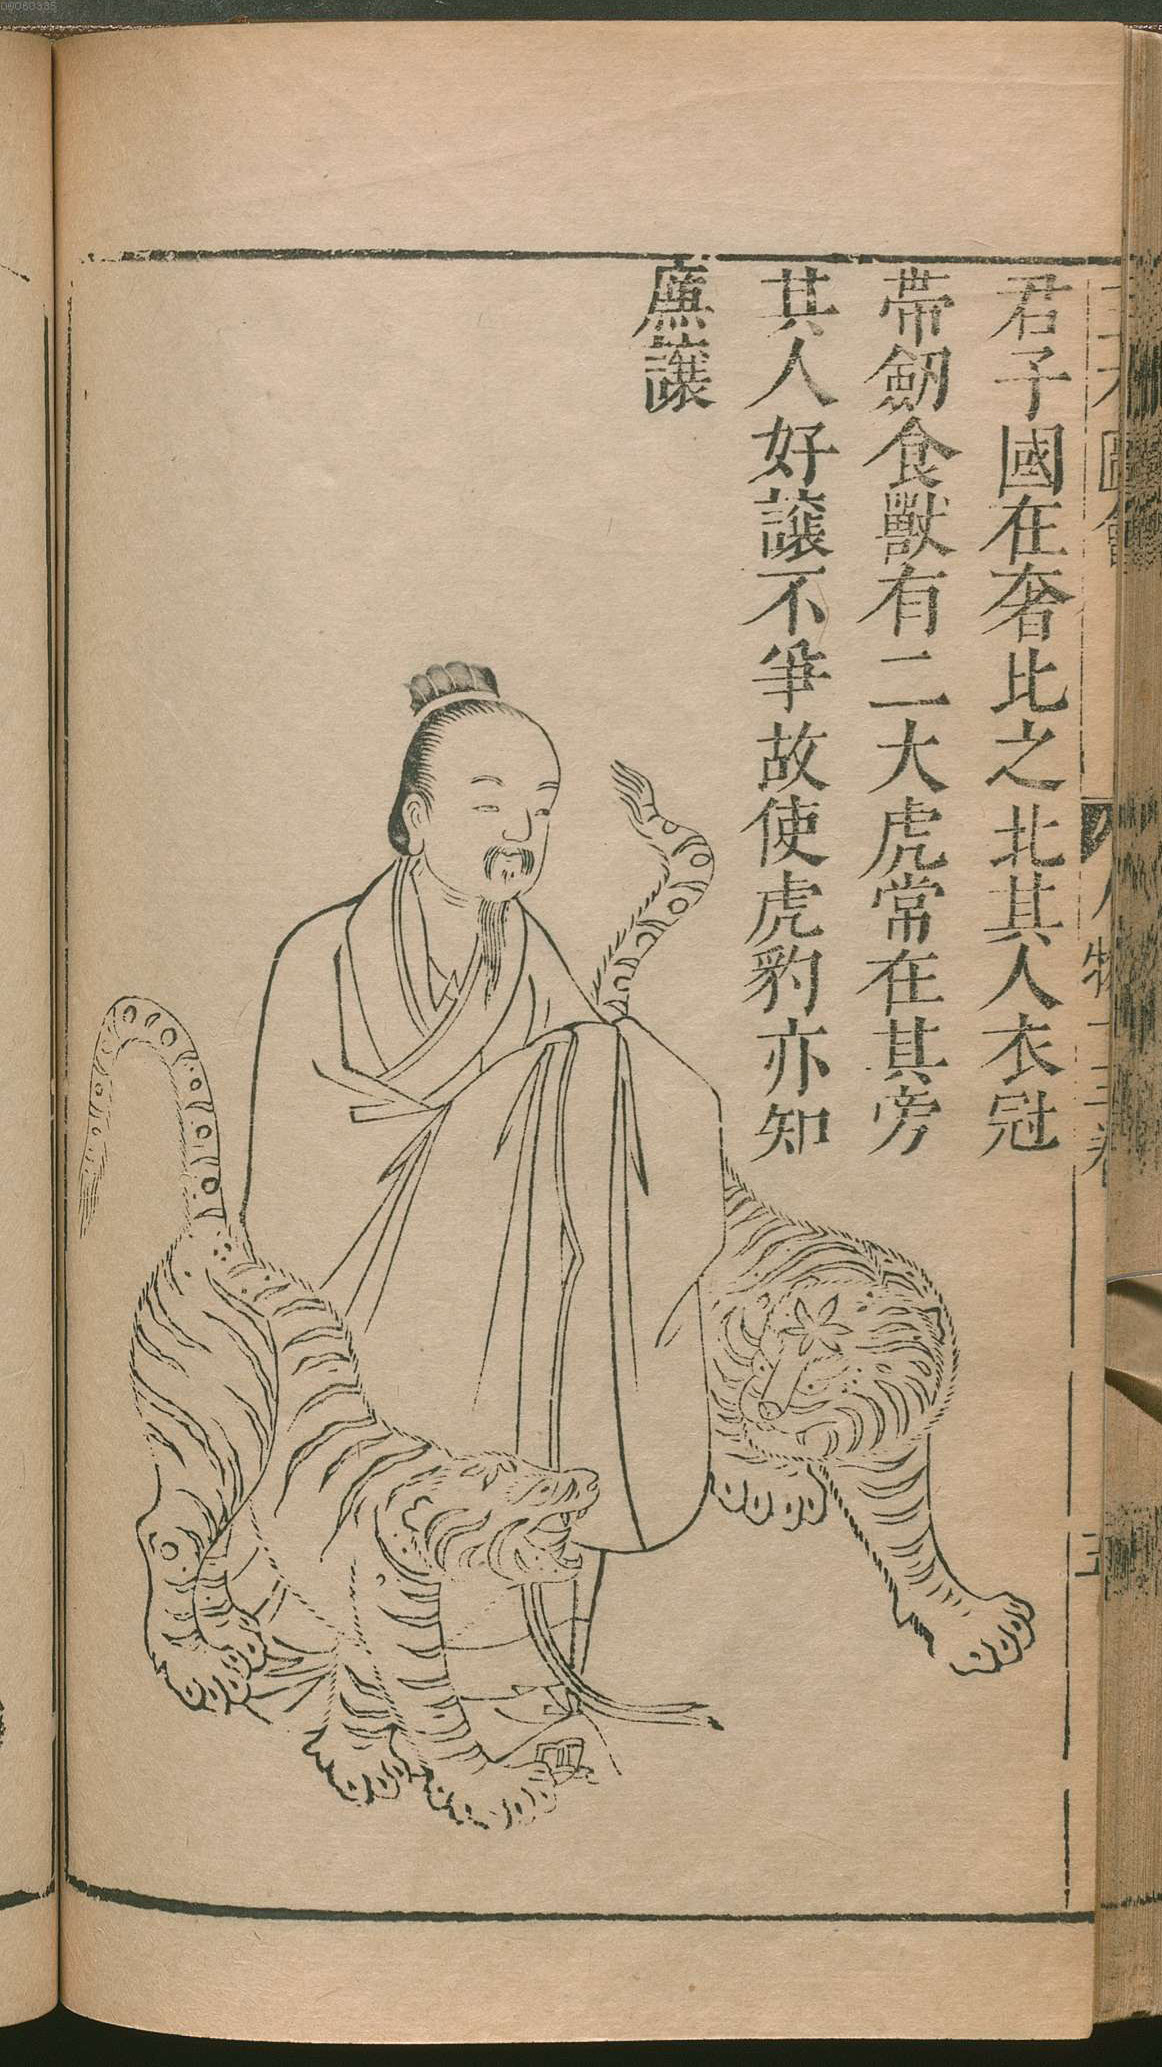 君子國在奢比之北其人衣冠
帶劒食獸有二大虎常在其旁
其人好讓不爭故使虎豹亦知
廉讓
00060335